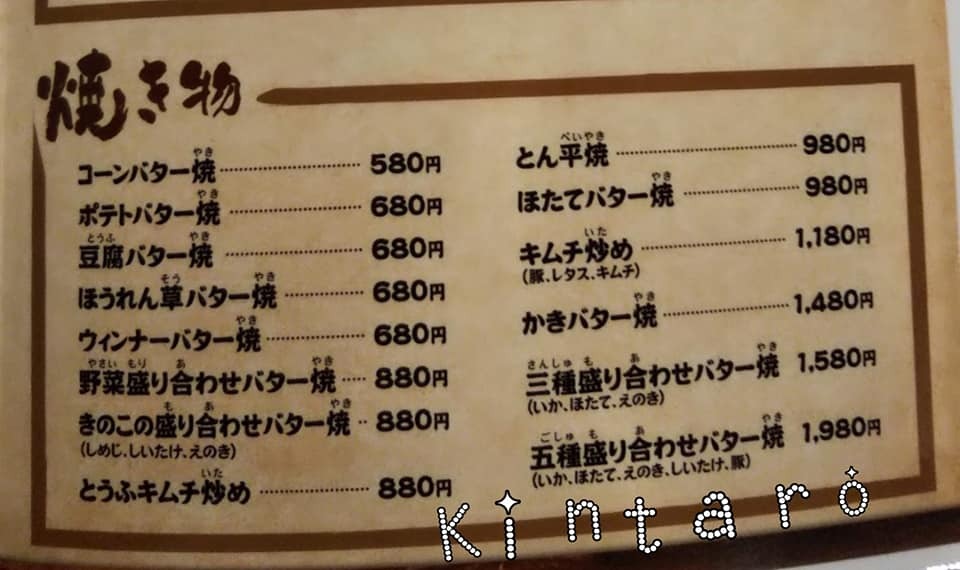 焼き物
コーンバター焼 580円
ポテトバター焼 680円
豆腐バター焼 680円
ほうれん草バター焼 680円
ウィンナーバター焼 680円
野菜盛り合わせバター焼 880円
きのこの盛り合わせバター焼 880円
(しめじ、しいたけ、えのき)
とうふキムチ炒め 880円
とん平焼 980円
ほたてバター焼 980円
キムチ炒め 1,180円
(豚、レタス、キムチ)
かきバター焼 1,480円
三種盛り合わせバター焼 1,580円
(いか、ほたて、えのき)
五種盛り合わせバター焼 1,980円
(いか、ほたて、えのき、しいたけ、豚)
Kintaro